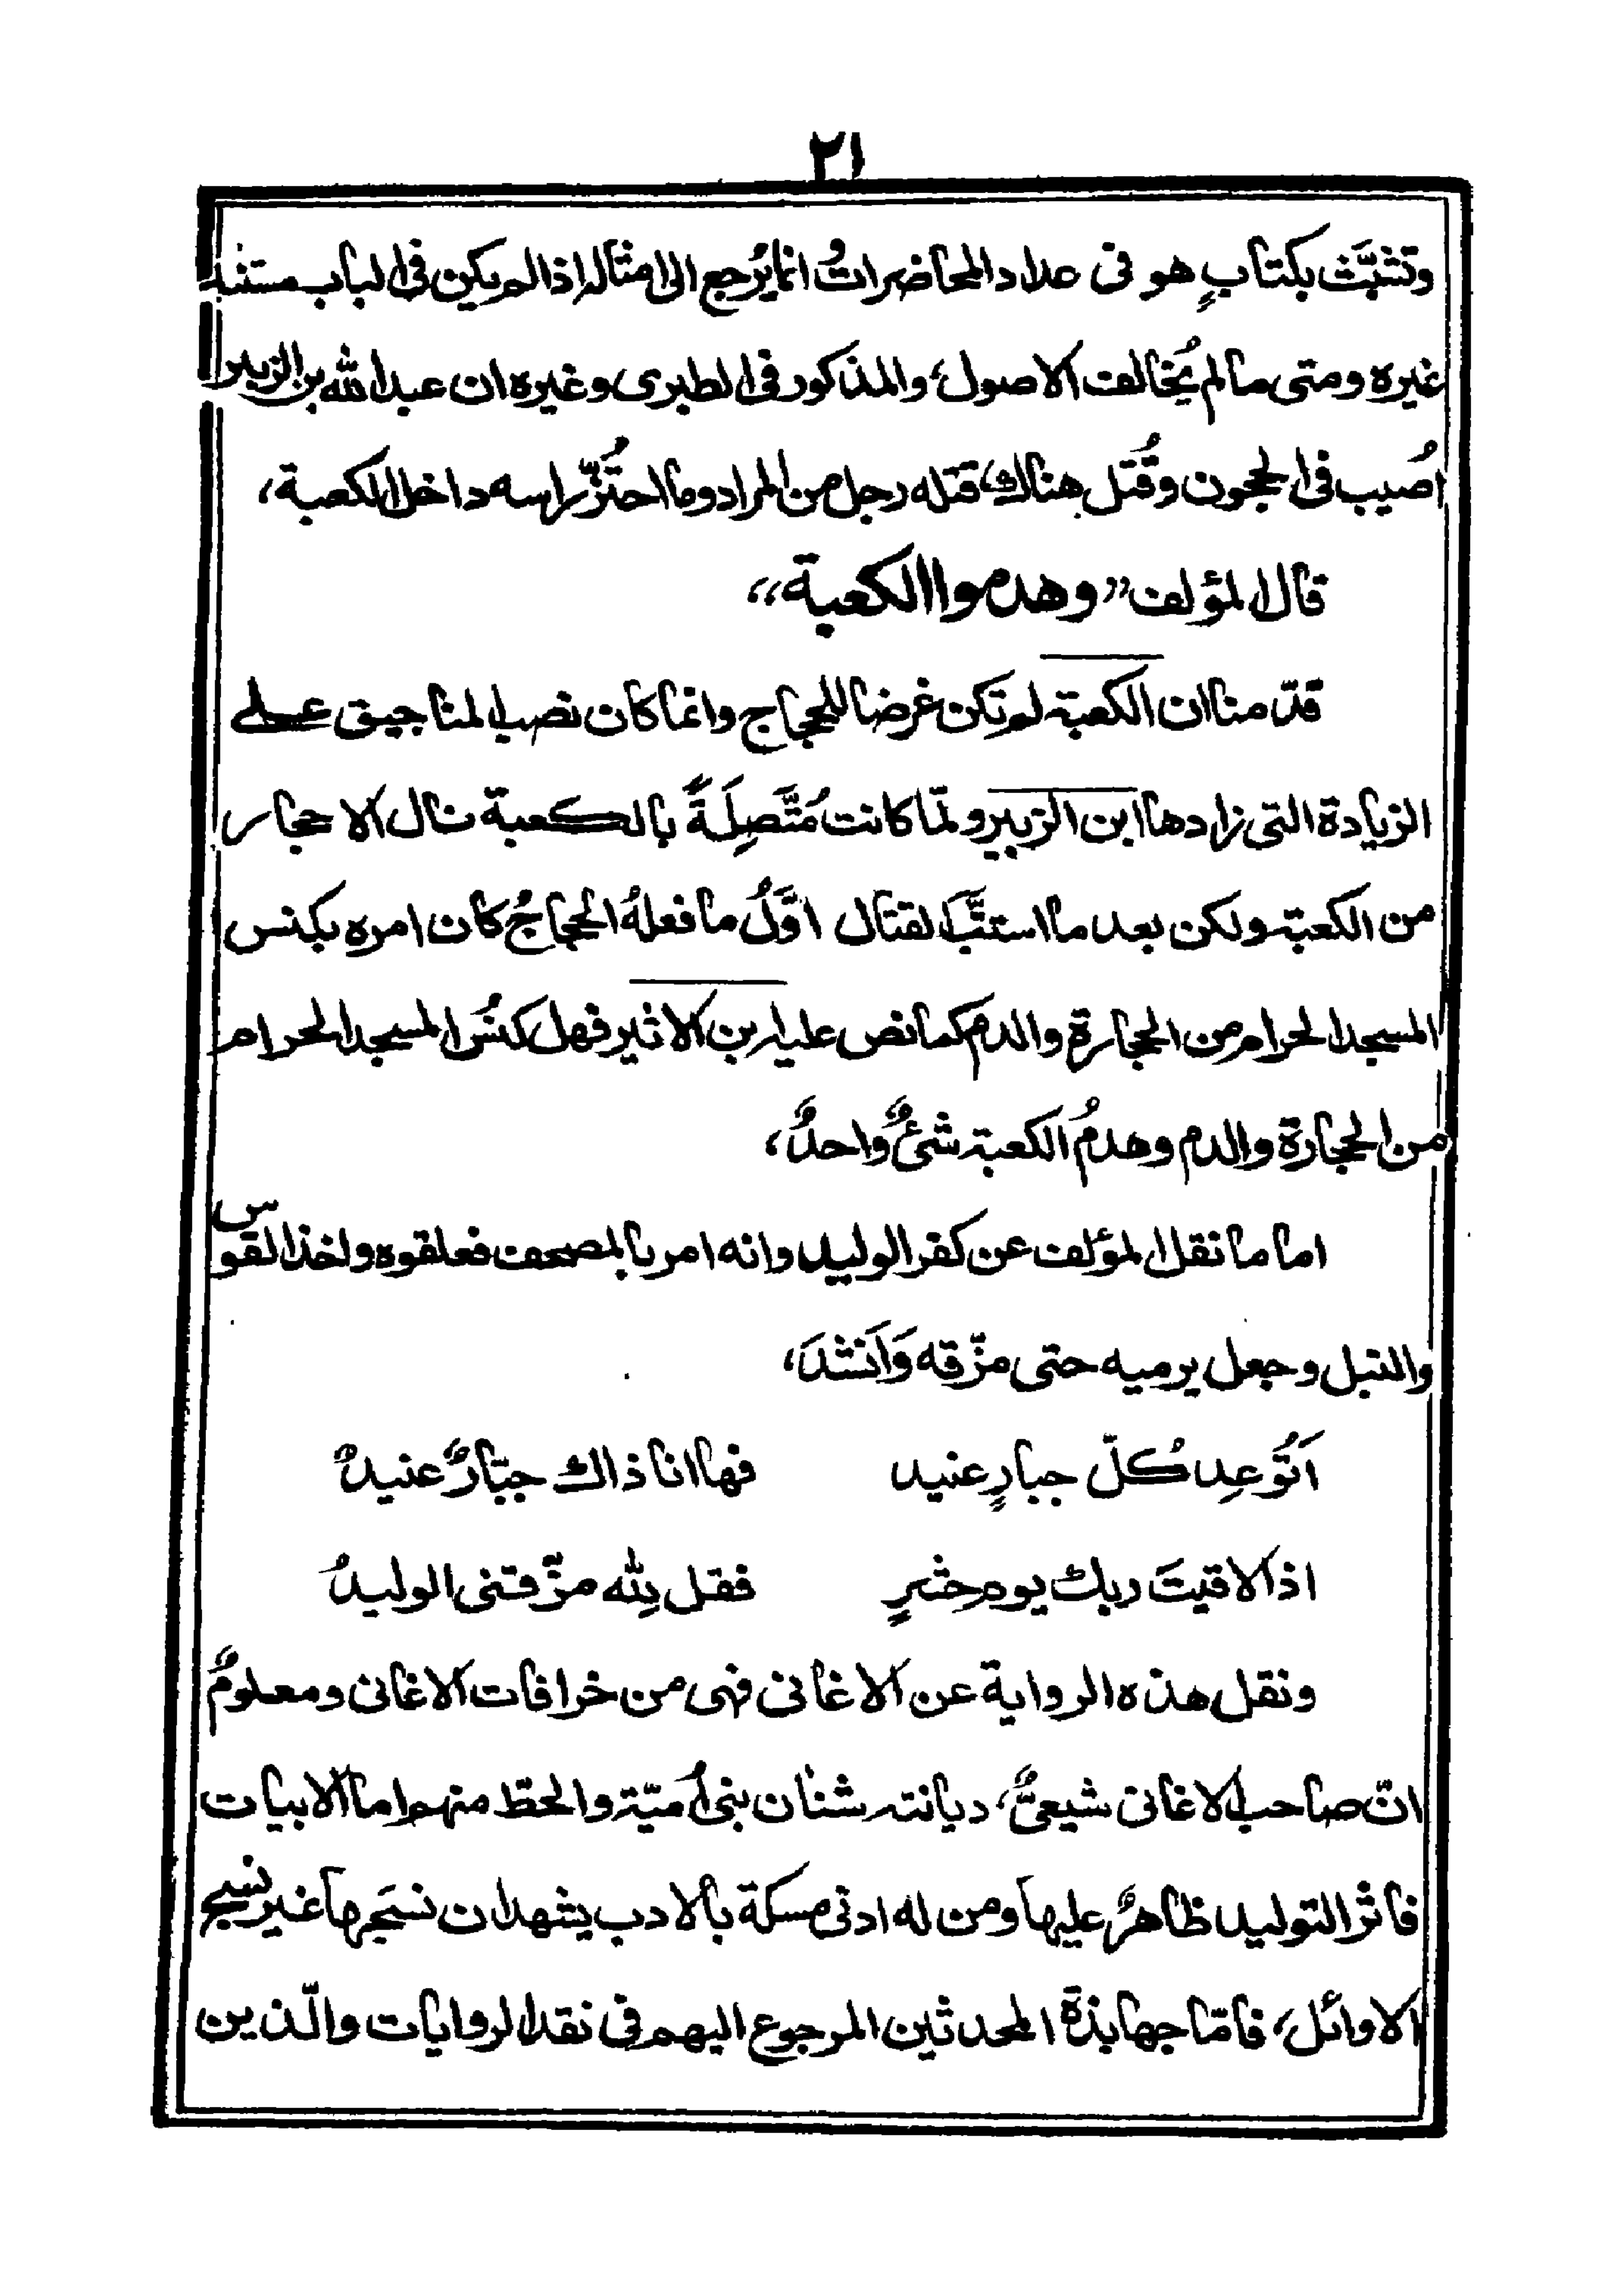 ٢١
وتشبَّث بكتابٍ هو فى عداد المحاضرات وانما يُرجع الى امثاله اذا لم يكن فى الباب مستند
غيره ومتى ما لم يُخالف الاصول، والمذكور فى الطبرى وغيره ان عبد الله بن الزبير
اُصيب فى الحجون وقُتل هناك، قتله رجل من المراد وما احتُزّ راسه داخل الكعبة،
قال المؤلف ”وهدموا الكعبة“
قدّمنا ان الكعبة لم تكن غرضا للحجاج وانما كان نصب المناجيق على
الزيادة التى زادها ابن الزبير ولمّا كانت مُتَّصِلَةً بالكعبة نال الاحجار
من الكعبة ولكن بعد ما استتبَّ القتال اوَّلُ ما فعلهُ الحجاجُ كان امره بكنس
المسجد الحرام من الحجارة والدم كما نص عليه بن الاثير فهل كنسُ المسجد الحرام
من الحجارة والدم وهدمُ الكعبة شئٌ واحدٌ،
اما ما نقل المؤلف عن كفر الوليد وانه امر بالمصحف فعلقوه واخذ القوس
والنبل وجعل يرميه حتى مزّقه وَاَنشدَ،
اَتُوعِد كُلّ جبارٍ عنيد فها انا ذاك جبّارٌ عنيدٌ
اذا لاقيتَ ربك يوم حشرٍ فقل لِله مزّقتنى الوليدُ
ونقل هذه الرواية عن الاغانى فهى من خرافات الاغانى ومعلومٌ
انّ صاحب الاغانى شيعىٌّ، ديانته شنان بنى اُميّة والحطّ منهم اما الابيات
فاثر التوليد ظاهرٌ عليها ومن له ادنى مسكة بالادب يشهد ان نسَجها غير نسج
الاوائل، فامّا جهابذة المحدثين المرجوع اليهم فى نقد الروايات والّذين